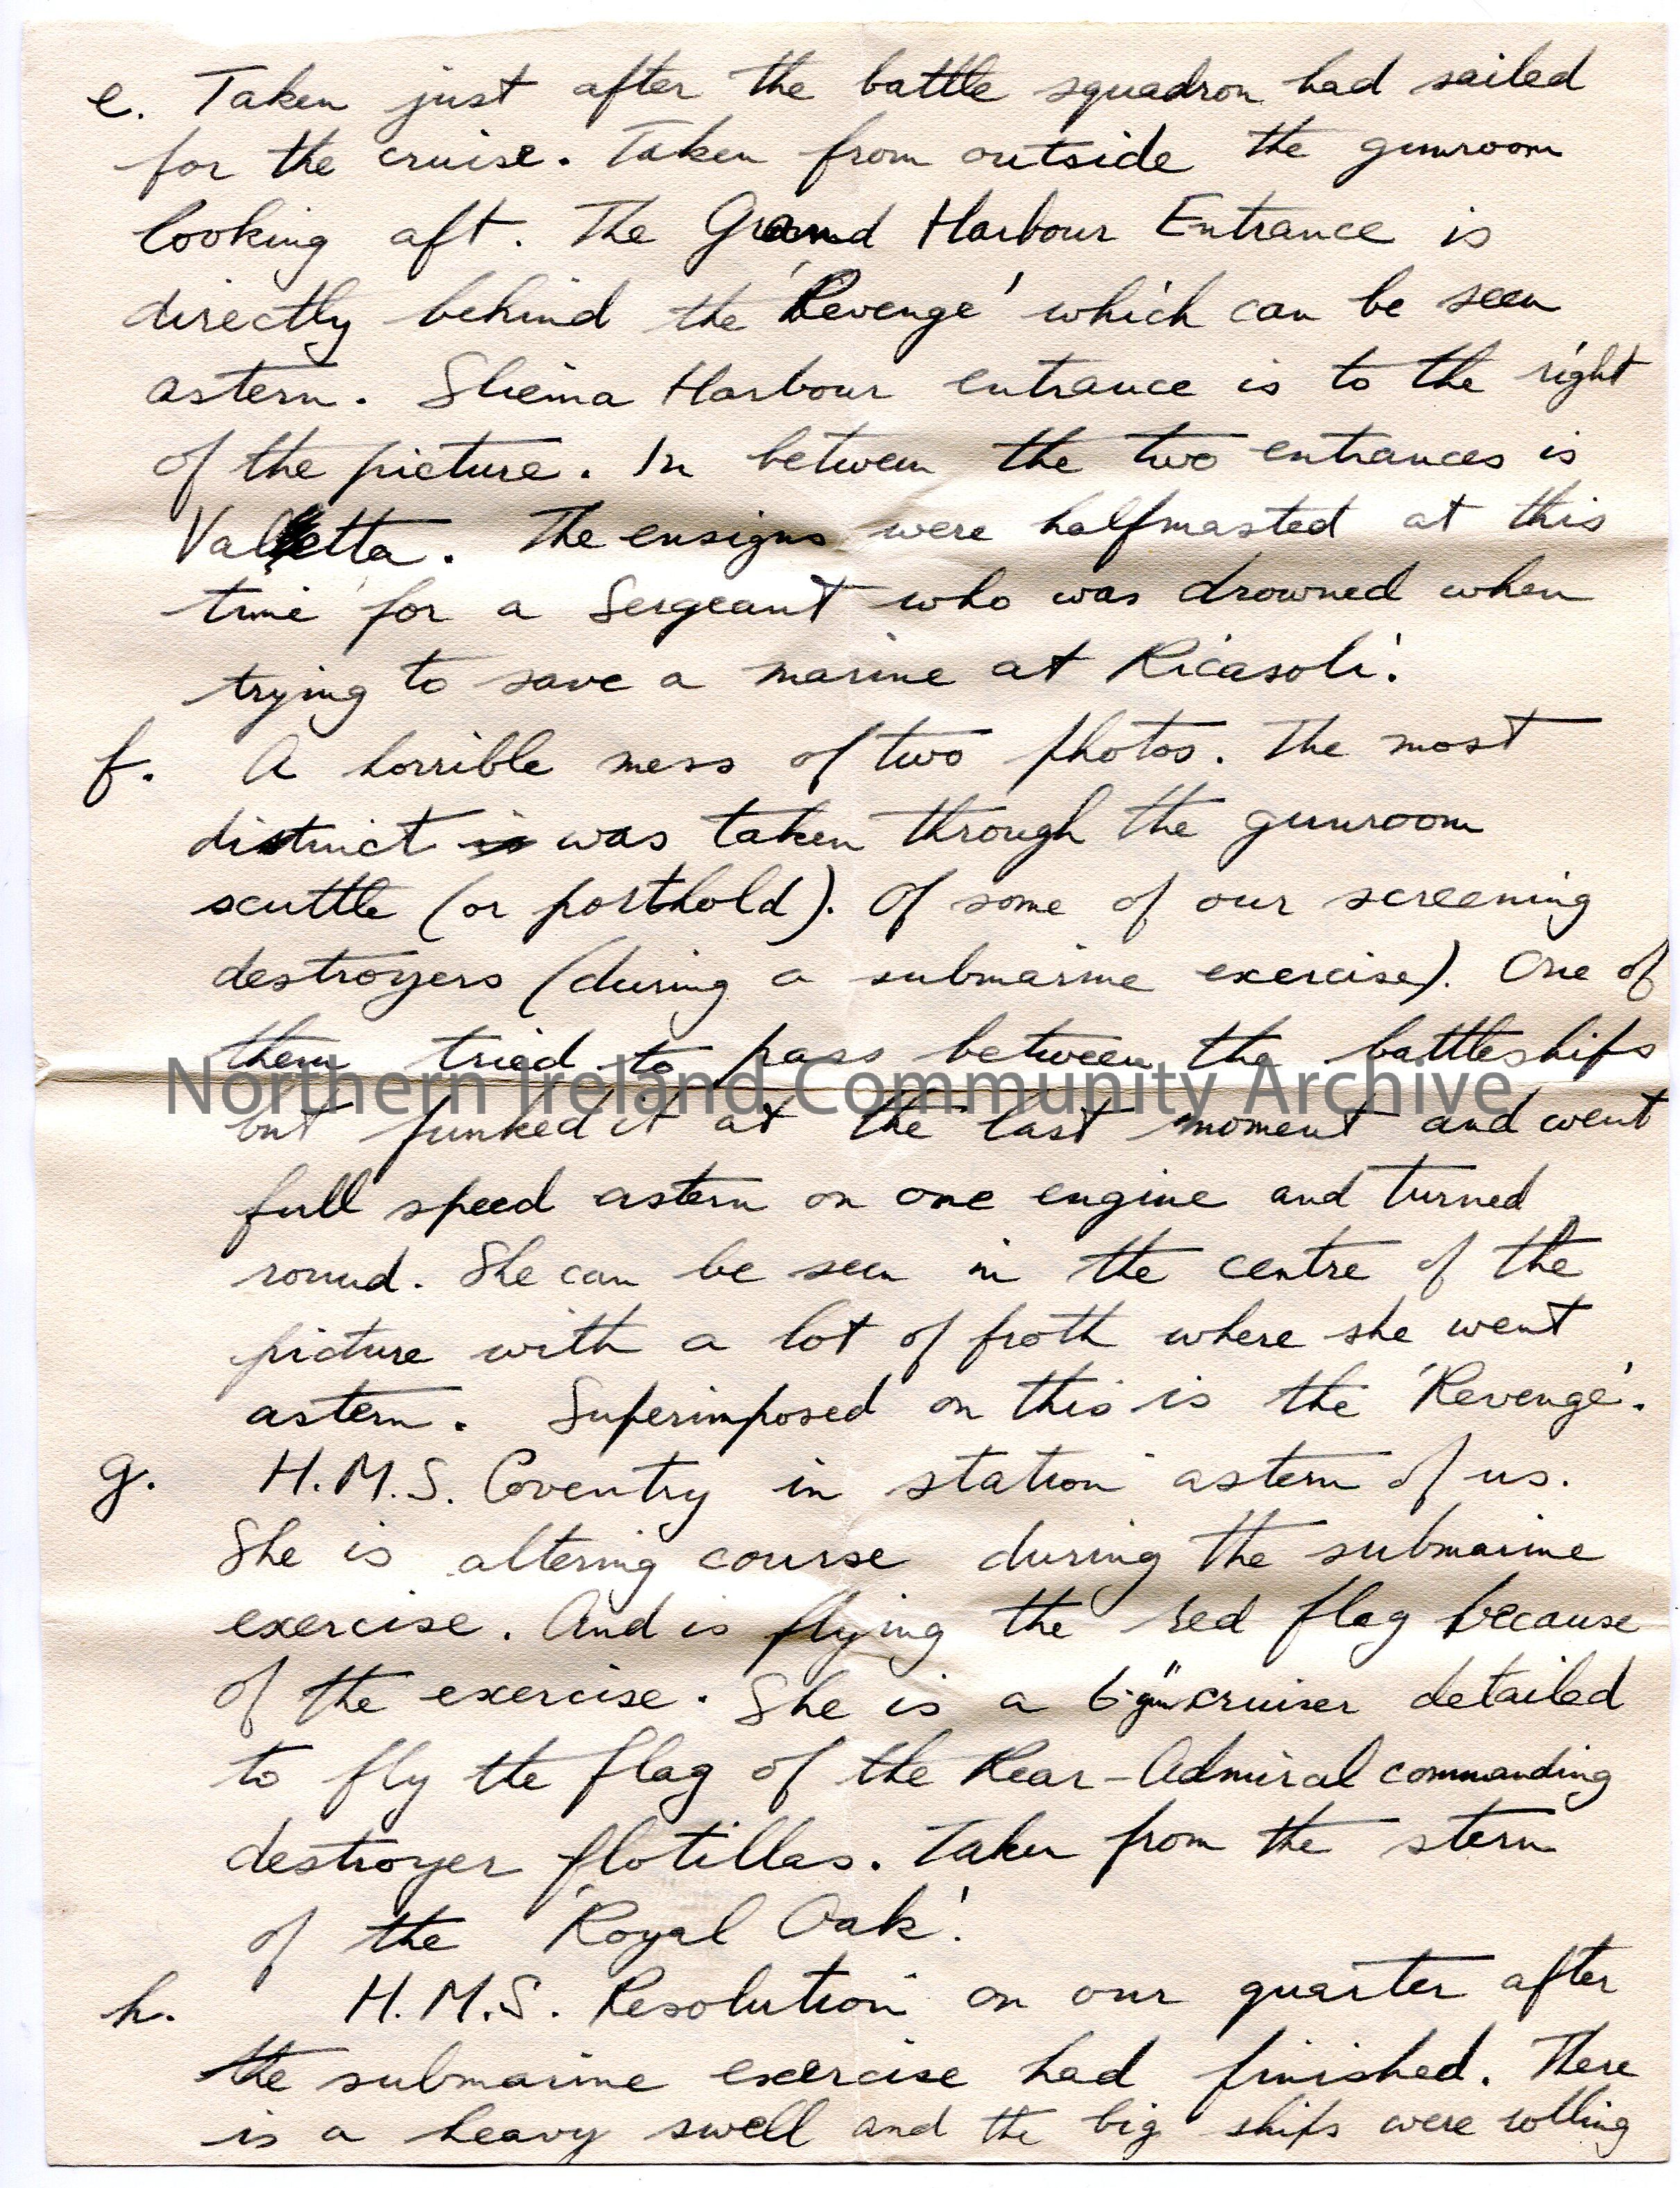 e. Taken just after the battle squadron had sailed
for the cruise. Taken from outside the gunroom
looking aft. The Grand Harbour Entrance is
directly behind the 'Revenge' which can be seen
astern. Sliema Harbour entrance is to the right
of the picture. In between the two entrances is
Valletta. The ensigns were halfmasted at this
time for a Sergeant who was drowned when
trying to save a marine at Ricasoli.
f. A horrible mess of two photos. The most
distinct is was taken through the gunroom
scuttle (or porthold). Of some of our screening
destroyers (during a submarine exercise). One of
them tried to pass between the battleships
Northern Ireland Community Archive
but funked it at the last moment and went
full speed astern on one engine and turned
round. She can be seen in the centre of the
picture with a lot of froth where she went
astern. Superimposed on this is the 'Revenge'.
g. H.M.S. Coventry in station astern of us.
She is altering course during the submarine
exercise. And is flying the red flag because
of the exercise. She is a 6" gun cruiser detailed
to fly the flag of the Rear-Admiral commanding
destroyer flotillas. Taken from the stern
of the 'Royal Oak'.
h. H.M.S. Resolution on our quarter after
the submarine exercise had finished. There
is a heavy swell and the big ships were rolling